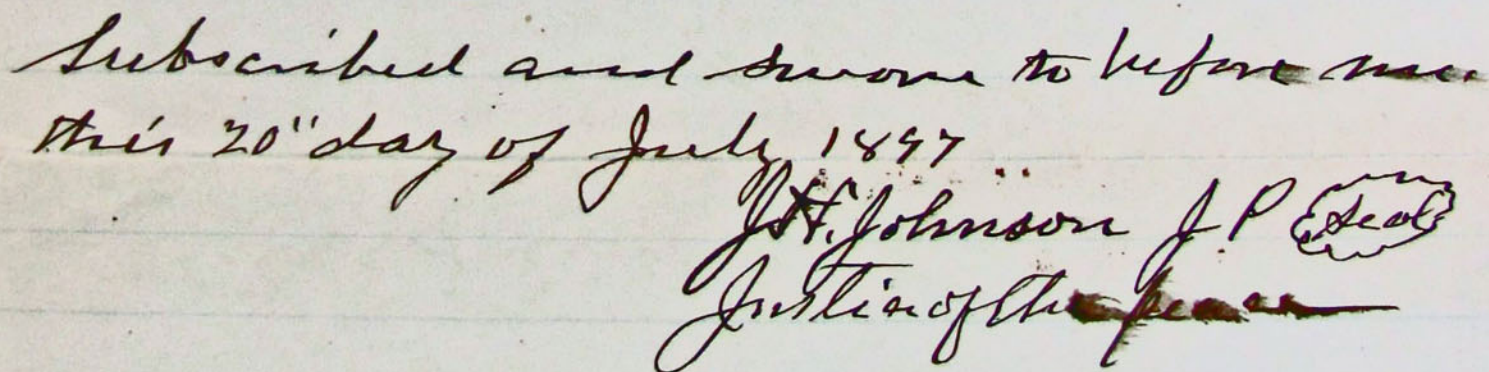 Subscribed and sworne to before me
this 20" day of July 1897
J.H. Johnson J.P Seal
Justice of the peace